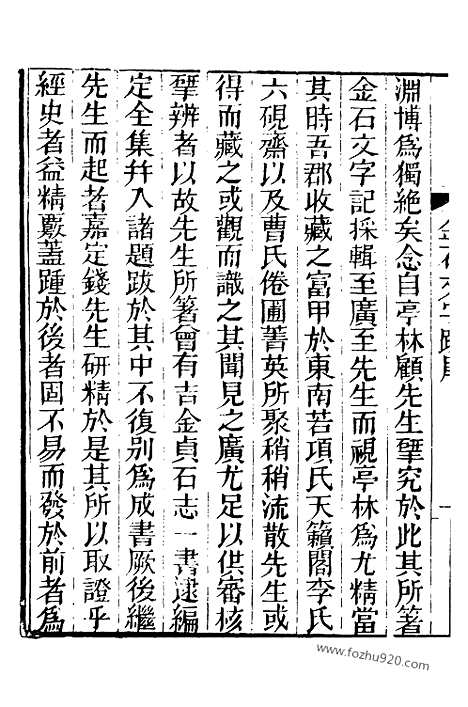 淵博為獨絕矣念自亭林顧先生揅究於此其所著
金石文字記採輯至廣至先生而視亭林為尤精當
其時吾郡收藏之富甲於東南若項氏天籟閣李氏
六硯齋以及曹氏倦圃菁英所聚稍稍流散先生或
得而藏之或觀而識之其聞見之廣尤足以供審核
揅辨者以故先生所著曾有吉金貞石志一書逮編
定全集并入諸題跋於其中不復別為成書厥後繼
先生而起者嘉定錢先生研精於是其所以取證乎
經史者益精覈蓋踵於後者固不易而發於前者為
www.fozhu920.com